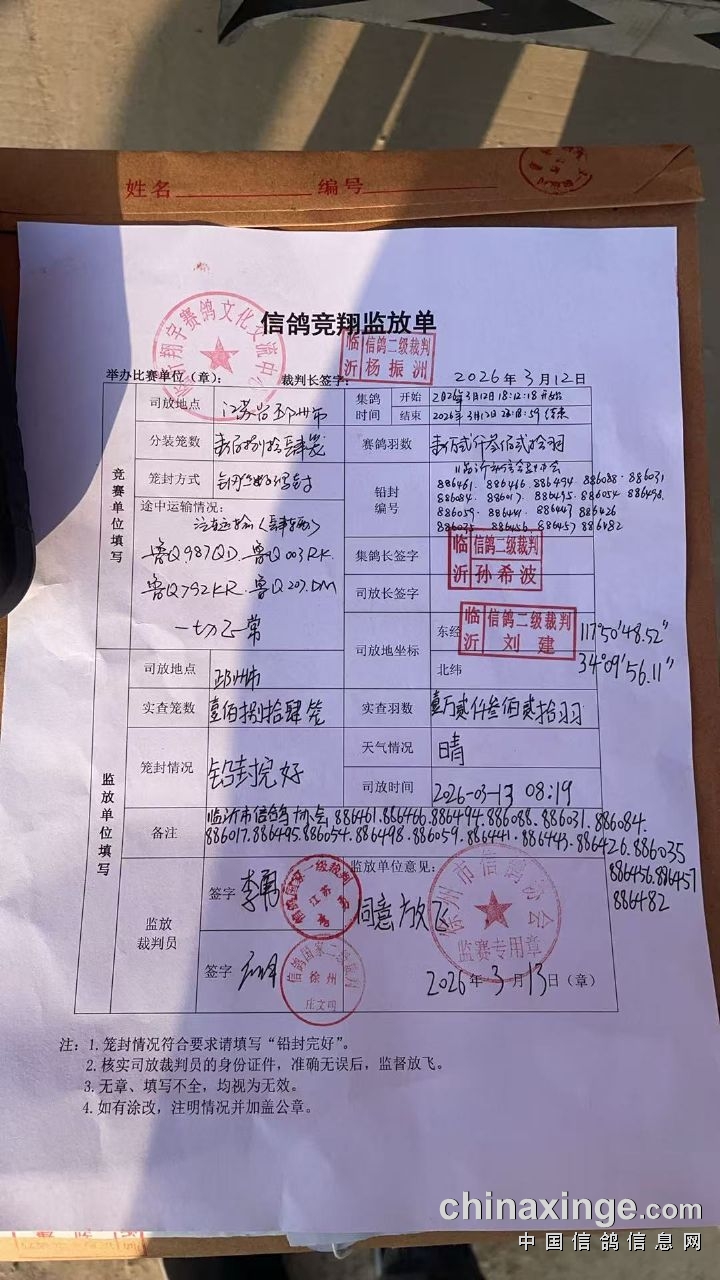 姓名 编号
信鸽竞翔监放单
翔宇赛鸽文化交流中心
临沂 信鸽二级裁判 杨振洲
举办比赛单位（章）： 裁判长签字： 2026年3月12日
竞赛单位填写
司放地点 江苏省邳州市
集鸽时间 开始 2026年3月12日18:12:18开始
结束 2026年3月12日
分装笼数 壹佰捌拾肆笼
赛鸽羽数 壹万贰仟叁佰贰拾羽
笼封方式
铅封编号
886461. 886466. 886494. 886088. 886031
886084. 886017. 886495. 886054. 886498.
886059. 886441. 886443. 886426
886035 886456. 886457 886482
途中运输情况：
汽车运输（肆辆）
鲁Q987QD. 鲁Q003RK.
鲁Q792KR. 鲁Q207DM
一切正常
集鸽长签字 临沂 信鸽二级裁判 孙希波
司放长签字
临沂 信鸽二级裁判 刘建
司放地坐标 东经 117°50′48.52″
北纬 34°09′56.11″
监放单位填写
司放地点 邳州市
实查笼数 壹佰捌拾肆笼
实查羽数 壹万贰仟叁佰贰拾羽
笼封情况 铅封完好
天气情况 晴
司放时间 2026-03-13 08:19
备注 临沂市信鸽协会 886461.886466.886494.886088.886031.886084.
886017.886495.886054.886498.886059.886441.886443.886426.886035
886456.886457
886482
监放裁判员
签字 李勇
信鸽国家一级裁判 江苏 李勇
签字
信鸽国家二级裁判 徐州 庄文明
监放单位意见：
同意放飞
徐州市信鸽协会
监赛专用章
2026年3月13日（章）
注：1.笼封情况符合要求请填写“铅封完好”。
2.核实司放裁判员的身份证件，准确无误后，监督放飞。
3.无章、填写不全，均视为无效。
4.如有涂改，注明情况并加盖公章。
chinaxinge.com
中国信鸽信息网